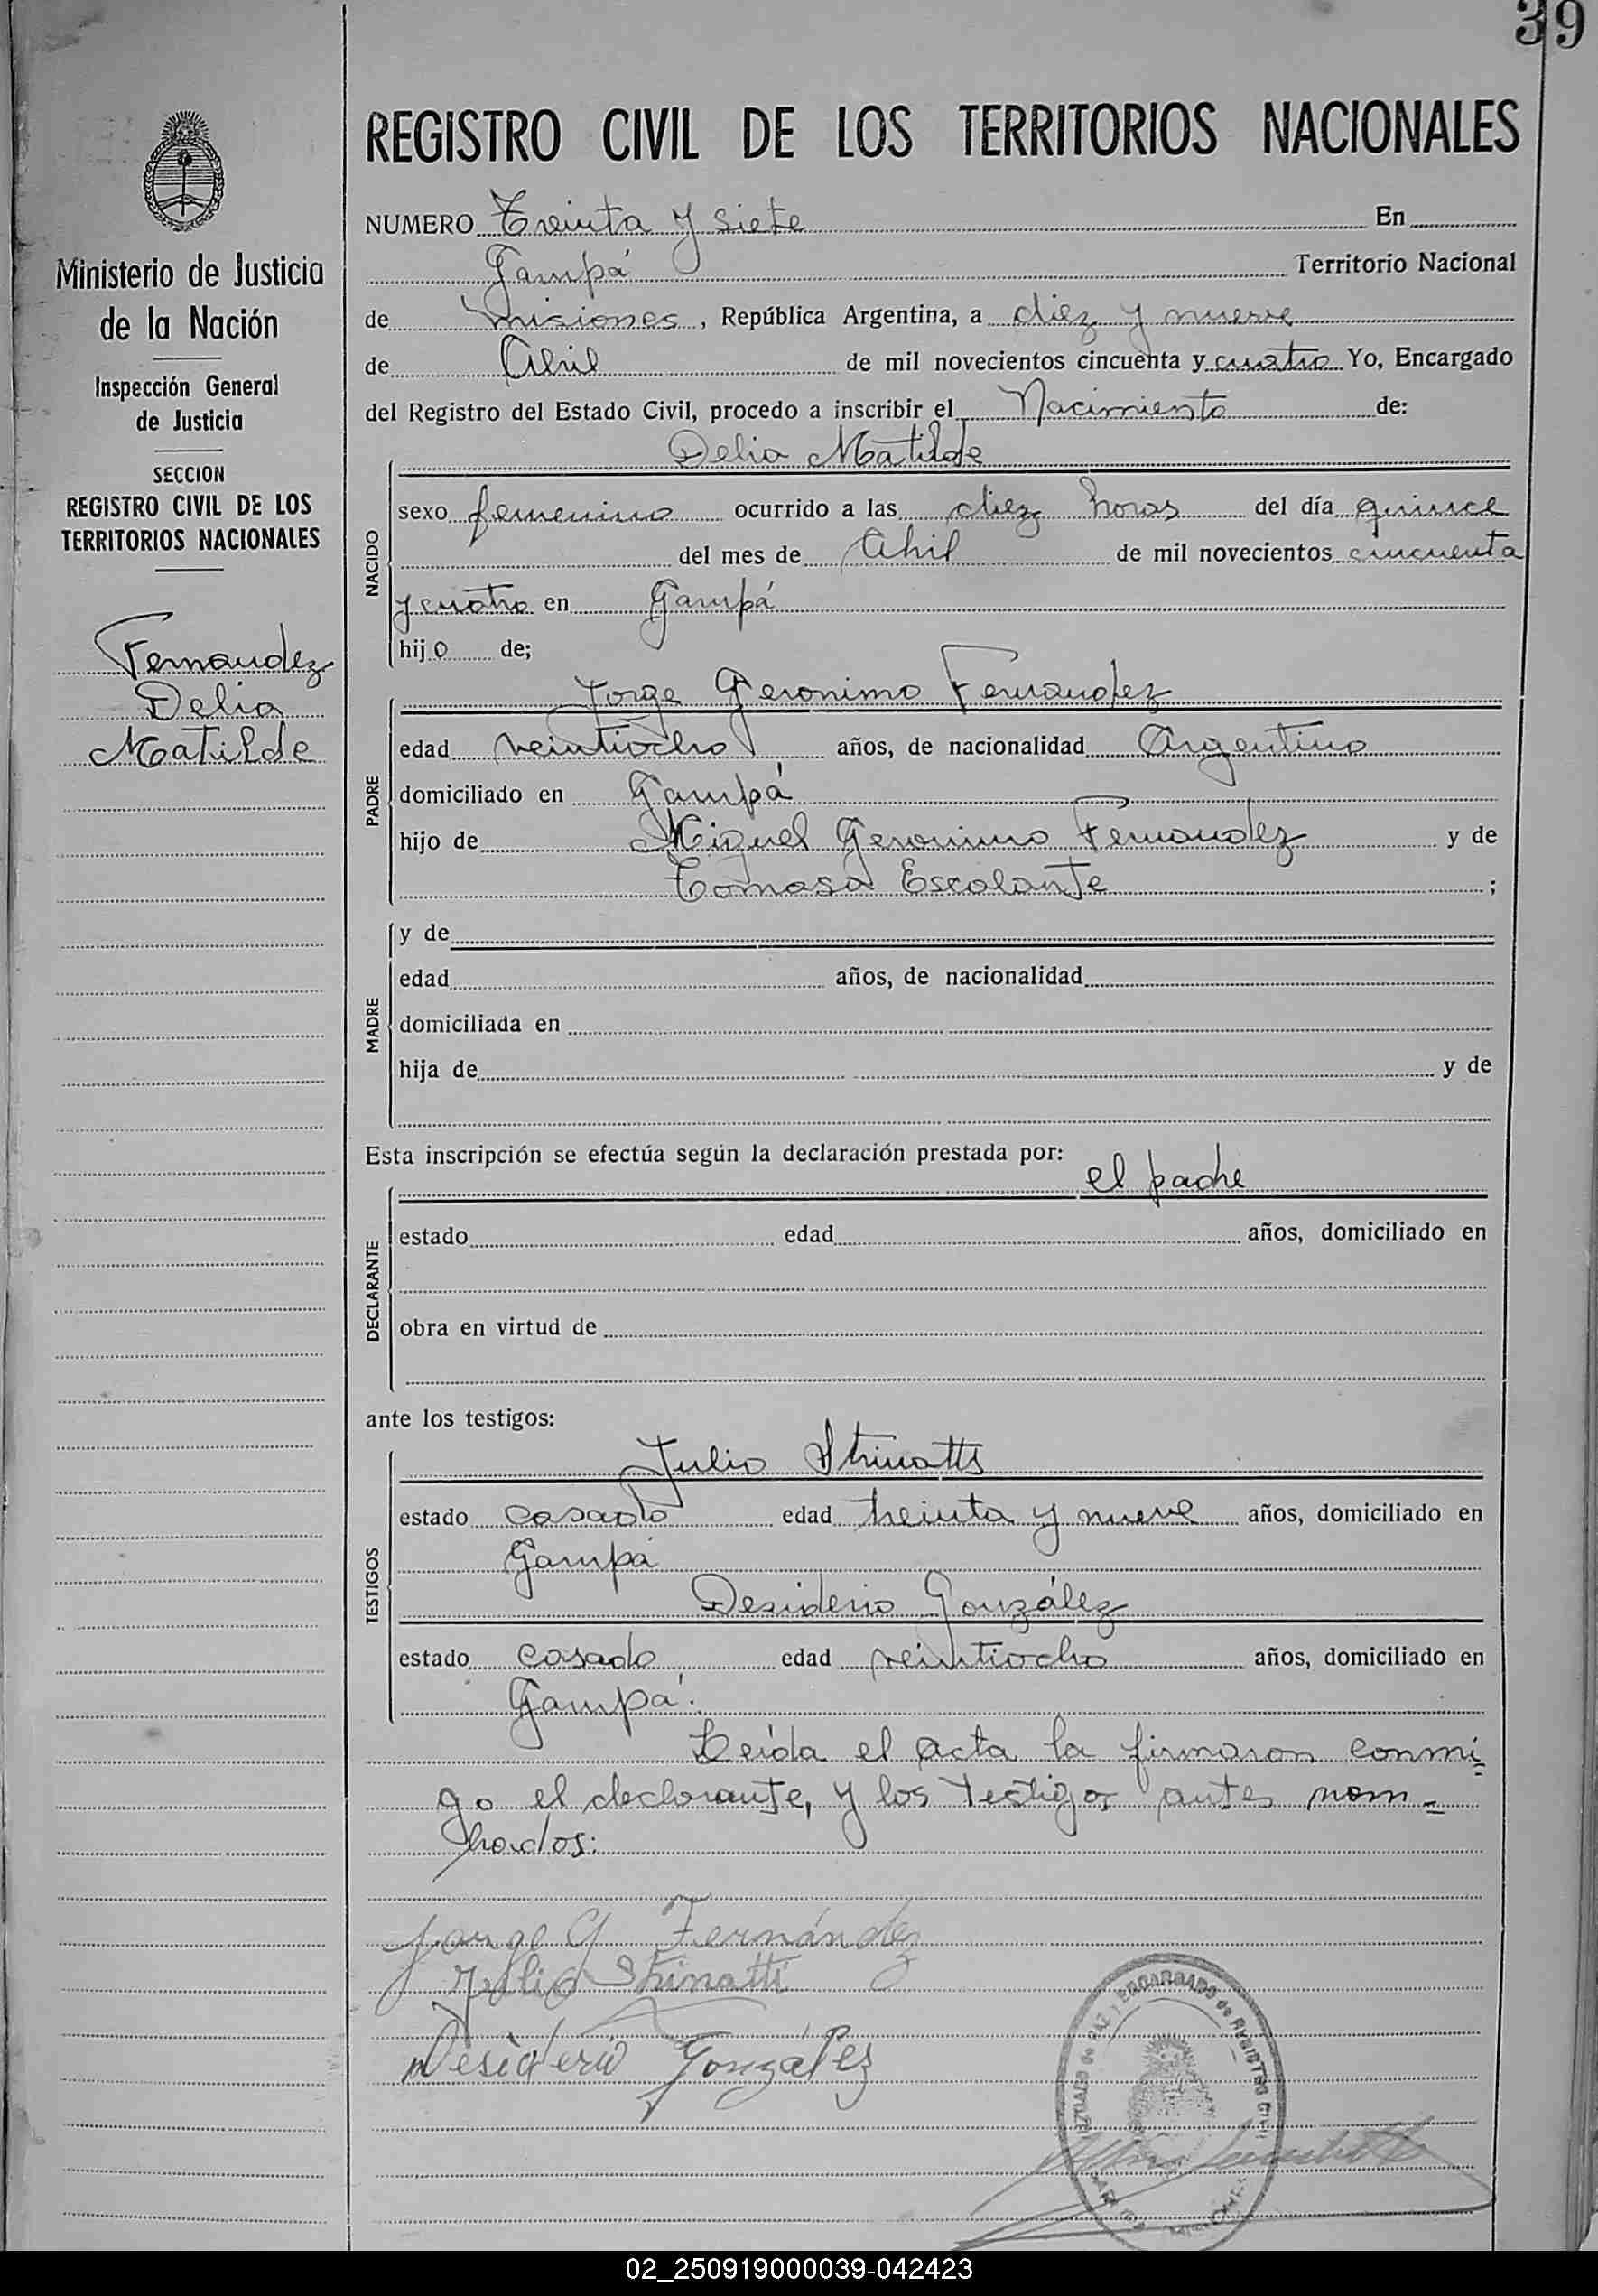 39
REGISTRO CIVIL DE LOS TERRITORIOS NACIONALES
Ministerio de Justicia
de la Nación
Inspección General
de Justicia
SECCION
REGISTRO CIVIL DE LOS
TERRITORIOS NACIONALES
Fernandez
Delia
Matilde
NUMERO Treinta y siete En
Garupá Territorio Nacional
de Misiones, República Argentina, a diez y nueve
de Abril de mil novecientos cincuenta y cuatro Yo, Encargado
del Registro del Estado Civil, procedo a inscribir el Nacimiento de:
Delia Matilde
NACIDO
sexo femenino ocurrido a las diez horas del día quince
del mes de Abril de mil novecientos cincuenta
y cuatro en Garupá
hijo de;
Jorge Geronimo Fernandez
PADRE
edad veintiocho años, de nacionalidad Argentino
domiciliado en Garupá
hijo de Miguel Geronimo Fernandez y de
Tomasa Escalante ;
MADRE
y de
edad años, de nacionalidad
domiciliada en
hija de y de
Esta inscripción se efectúa según la declaración prestada por:
el padre
DECLARANTE
estado edad años, domiciliado en
obra en virtud de
ante los testigos:
Julio Strinatti
TESTIGOS
estado casado edad treinta y nueve años, domiciliado en
Garupá
Desiderio González
estado casado edad veintiocho años, domiciliado en
Garupá.
Leída el acta la firmaron conmi-
go el declarante, y los testigos antes nom-
brados:
Jorge G Fernández
Julio Strinatti
Desiderio González
JUZGADO de PAZ y ENCARGADO de REGISTRO CIVIL
02_250919000039-042423